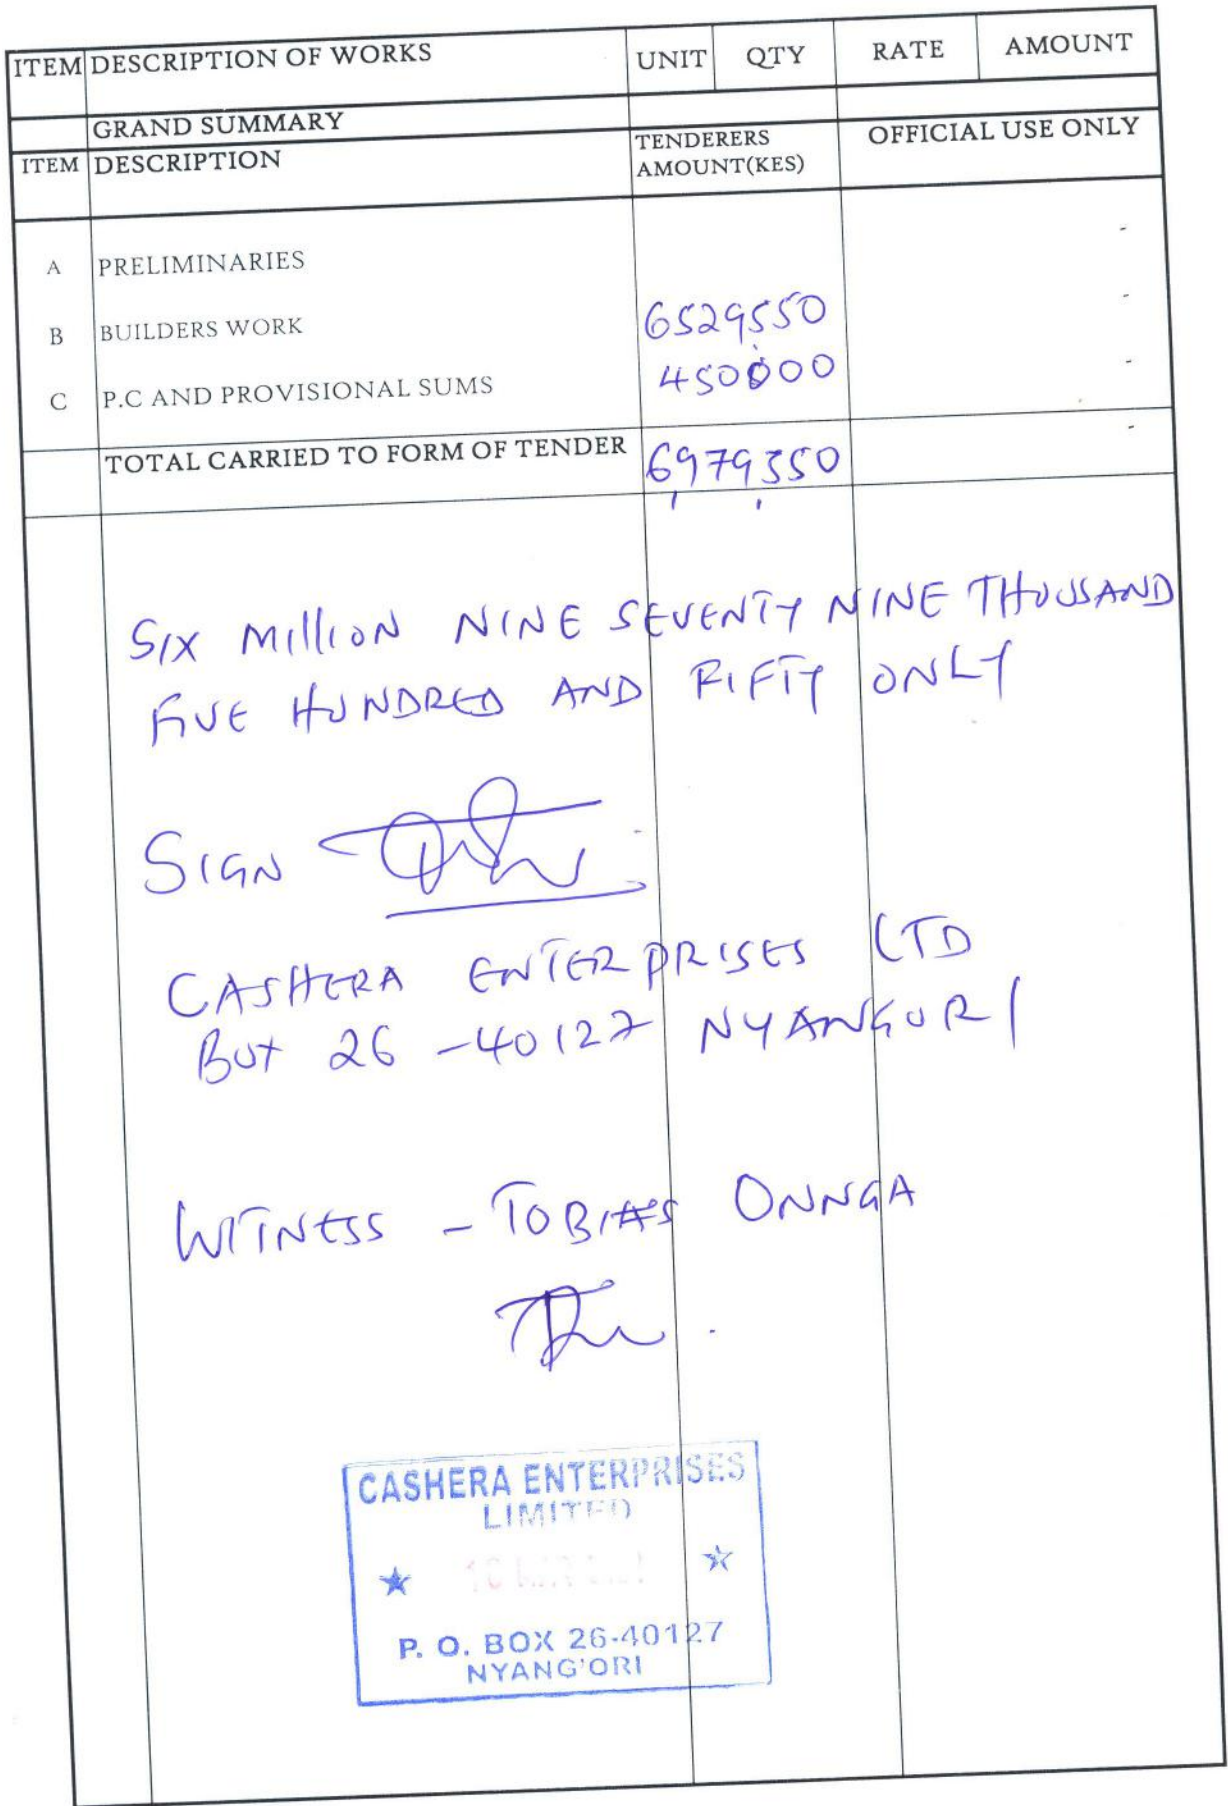 ITEM DESCRIPTION OF WORKS UNIT QTY RATE AMOUNT
GRAND SUMMARY
ITEM DESCRIPTION TENDERERS AMOUNT(KES) OFFICIAL USE ONLY
A PRELIMINARIES -
B BUILDERS WORK 6529550 -
C P.C AND PROVISIONAL SUMS 450000 -
TOTAL CARRIED TO FORM OF TENDER 6979550 -
SIX MIllION NINE SEVENTY NINE THOUSAND
FIVE HUNDRED AND FIFTY ONLY
SIGN
CASHERA ENTERPRISES LTD
BOX 26 - 40127 NYANGORI
WITNESS - TOBIAS ONNGA
CASHERA ENTERPRISES
LIMITED
P. O. BOX 26-40127
NYANG'ORI